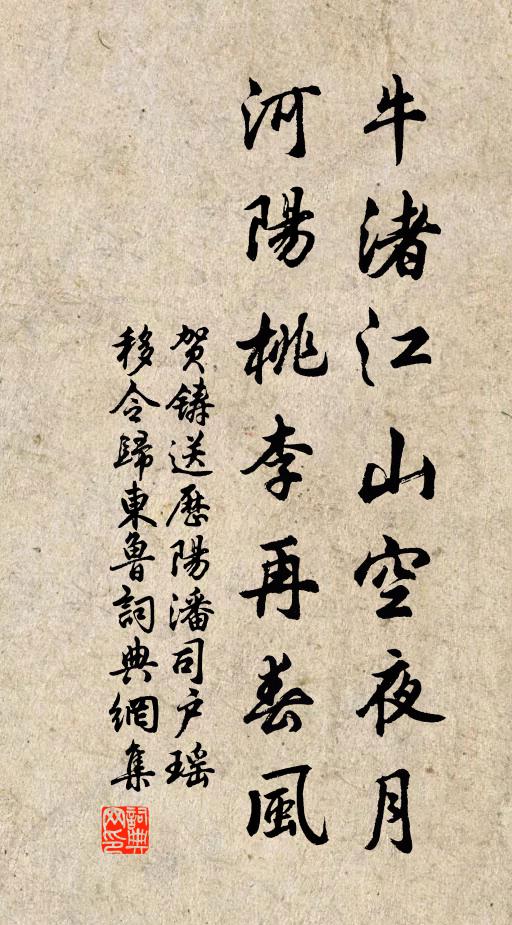 牛渚江山空夜月
河陽桃李再春風
贺鑄送歷陽潘司户瑶
移令歸東魯詞典網集
詞典
网印